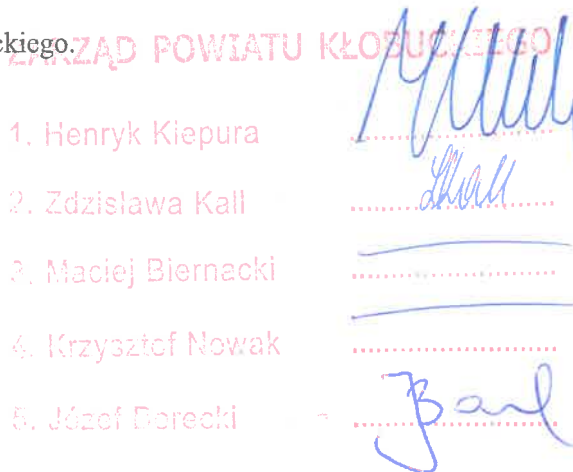 ckiego.
ZARZĄD POWIATU KŁOBUCKIEGO
1. Henryk Kiepura
2. Zdzisława Kall
3. Maciej Biernacki
4. Krzysztof Nowak
5. Józef Borecki